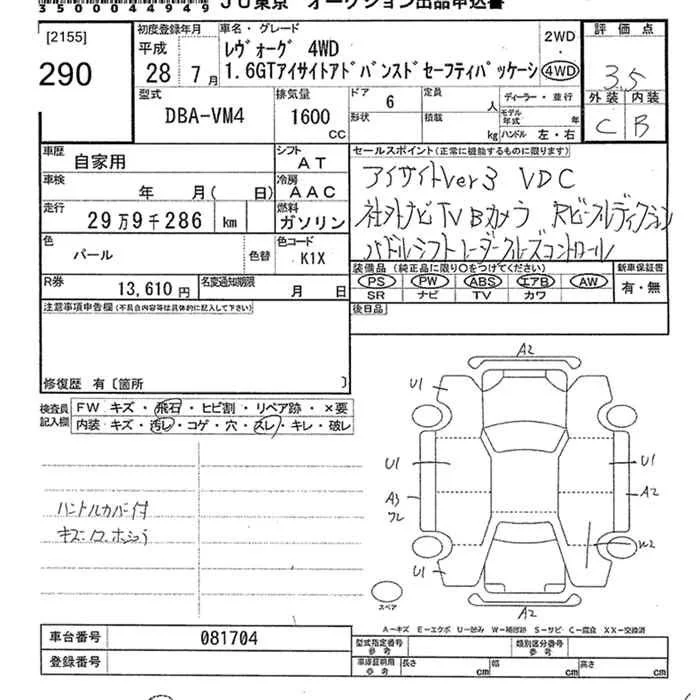 35000044949 JU東京 オークション出品申込書
[2155]
290
初度登録年月
平成
28年7月
車名・グレード
レヴォーグ 4WD
1.6GTアイサイトアドバンスドセーフティパッケージ
2WD
・
4WD
評価点
3.5
外装 内装
C B
型式
DBA-VM4
排気量
1600
CC
ドア
6
形状
定員
人
積載
kg
ディーラー・並行
モデル年式 年
ハンドル 左・右
車歴
自家用
シフト
AT
車検
年 月( 日)
冷房
AAC
走行
29万9千286 km
燃料
ガソリン
色
パール
色替
色コード
K1X
R券
13,610円
名変通知期限
月 日
セールスポイント(正常に機能するものに限ります)
アイサイトVer3 VDC
社外ナビ TV Bカメラ Rビークルディテクション
パドルシフト レーダークルーズコントロール
装備品(純正品に限り○をつけてください)
PS PW ABS エアB AW
SR ナビ TV カワ
新車保証書
有・無
後日品
注意事項申告欄(不具合内容等は具体的に記入して下さい)
修復歴 有〔箇所 〕
検査員
記入欄
FW キズ・飛石・ヒビ割・リペア跡・×要
内装 キズ・汚レ・コゲ・穴・スレ・キレ・破レ
ハンドルカバー付
A2
U1
U1
U1
A3
A2
W2
U1
A2
スペア
A-キズ E-エクボ U-凹み W-補修跡 S-サビ C-腐食 XX-交換済
車台番号
081704
登録番号
型式指定番号
参考
類別区分番号
参考
車庫証明用
参考
長さ cm
幅 cm
高さ cm